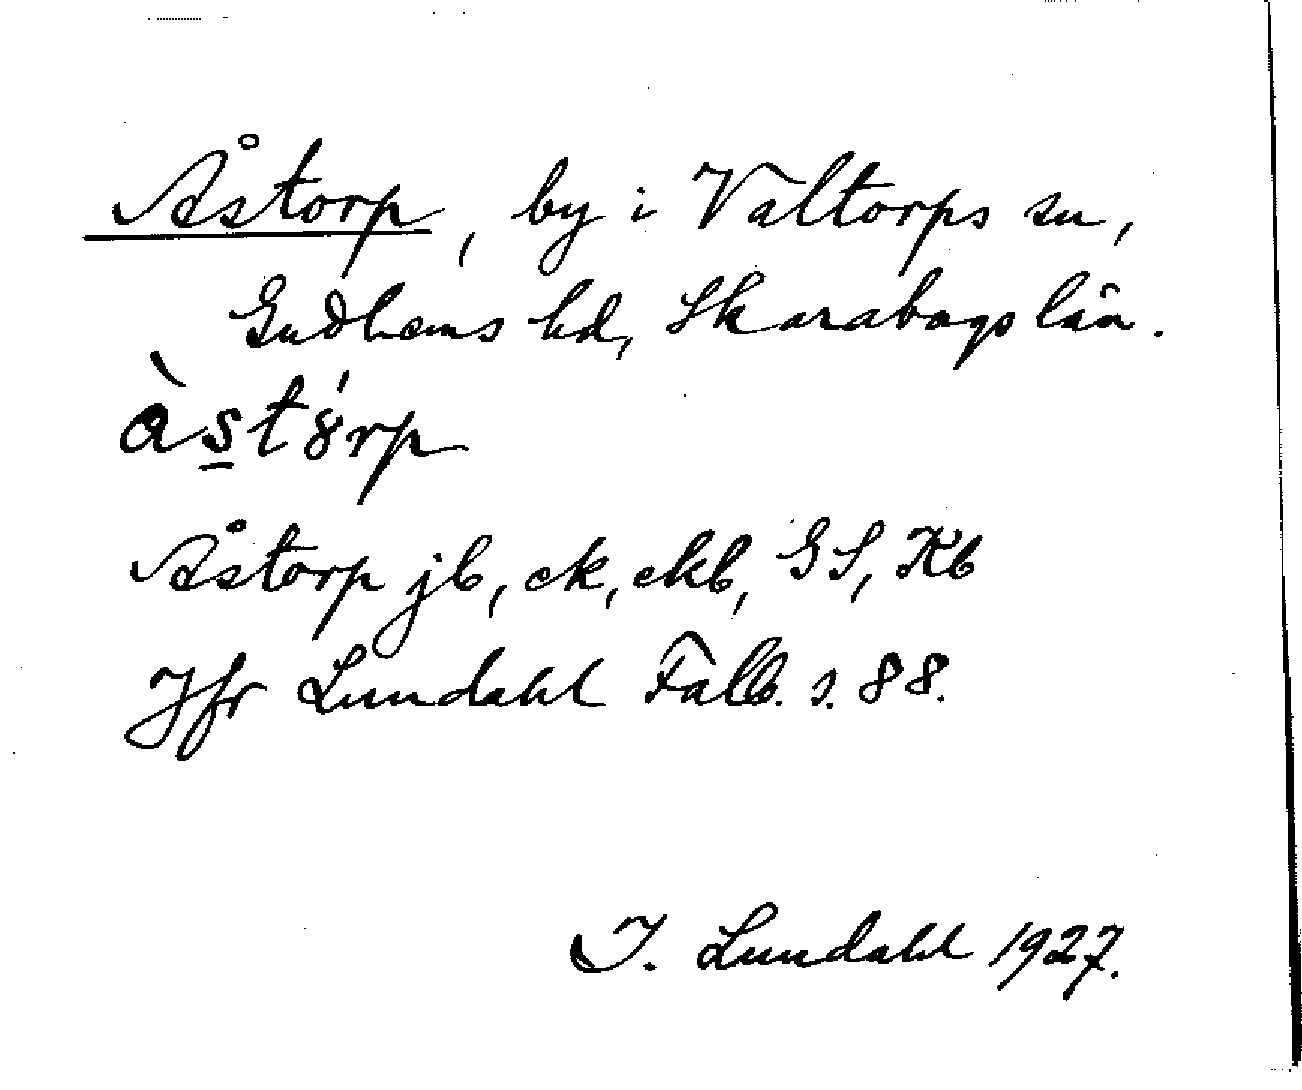 Åstorp, by i Valtorps sn,
Gudhems hd, Skaraborgs län.
àst8́rp
Åstorp jb, ek, ekb, GS, Kb
Jfr Lundahl Falb. s. 88.
I. Lundahl 1927.